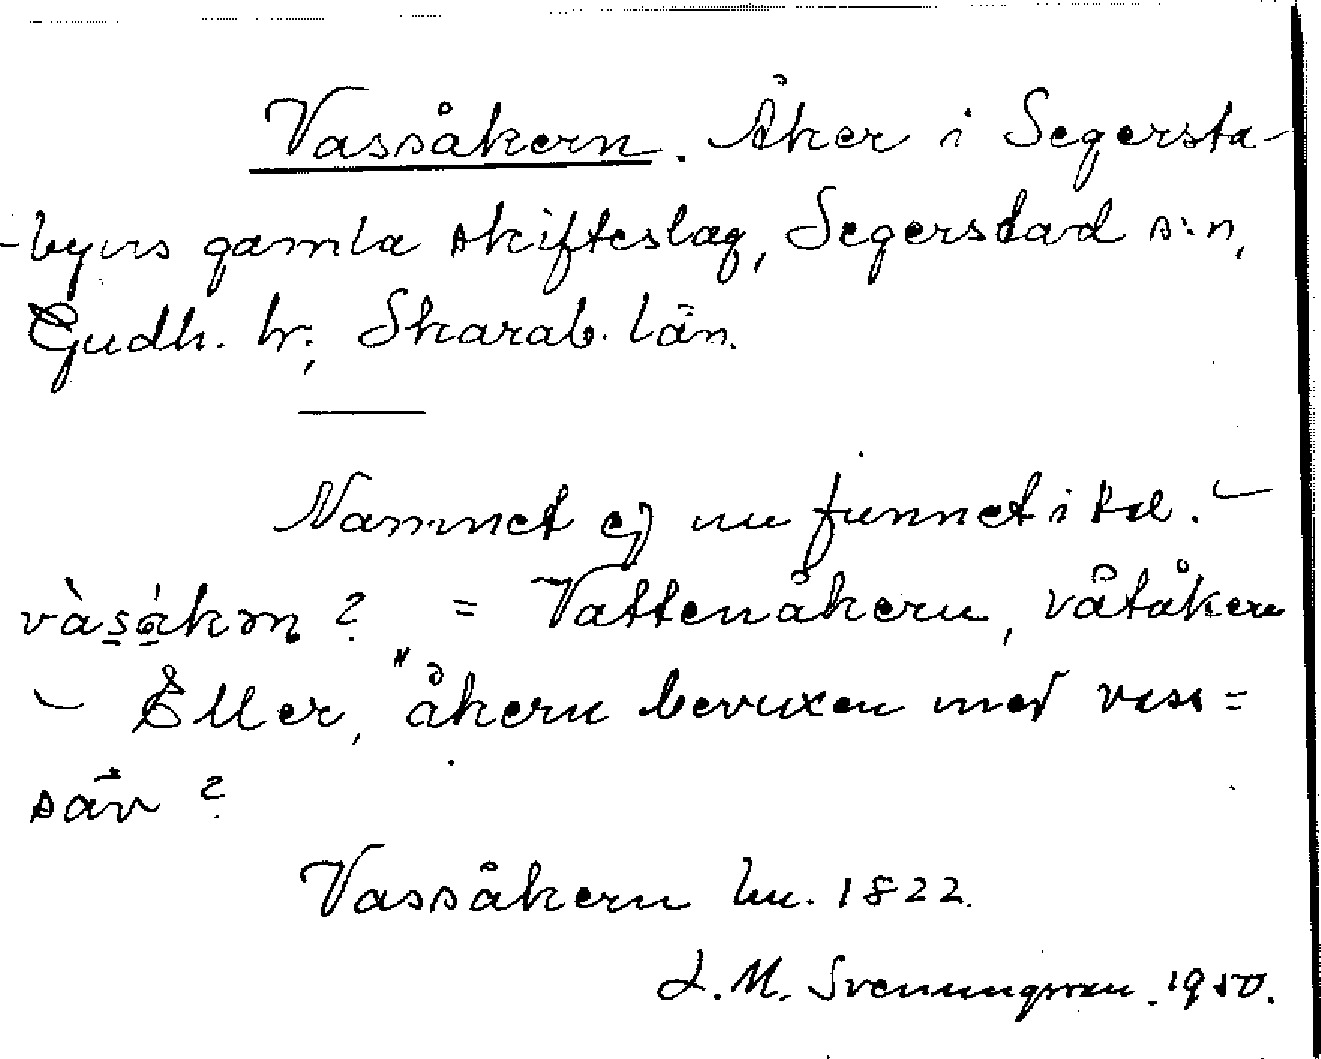 Vassåkern. Åker i Segersta-
-byns gamla skifteslag, Segerstad s:n,
Gudh. hr., Skarab. län.
Namnet ej nu funnet i tal. –
? = Vattenåkern, våtåkern
– Eller, "åkern bevuxen med vass =
säv ?
Vassåkern hu. 1822.
L. M. Svenungsson. 1950.